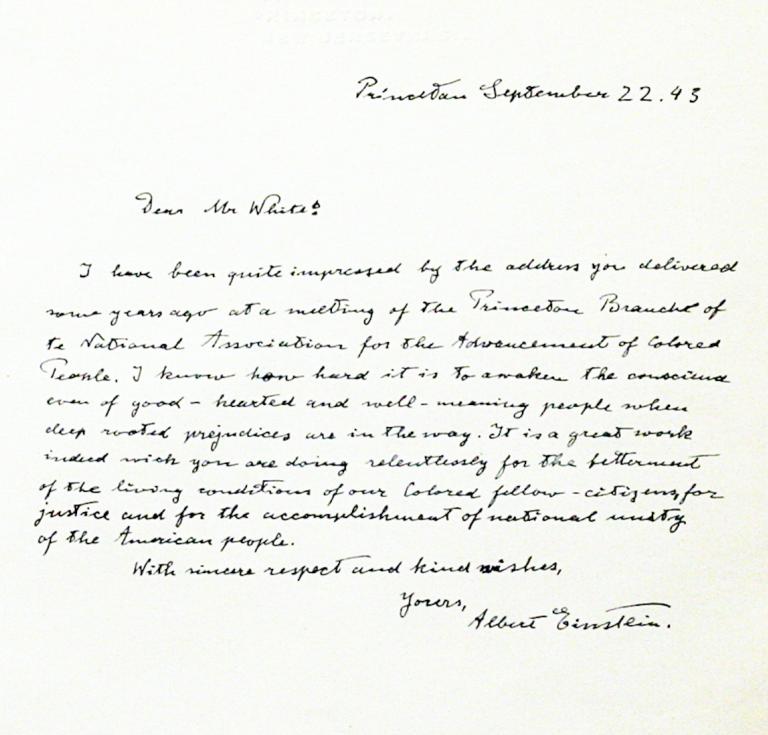 PRINCETON
NEW JERSEY, U.S.A.
Princeton September 22. 43
Dear Mr White:
I have been quite impressed by the address you delivered
some years ago at a meeting of the Princeton Branche of
te National Association for the Advancement of Colored
People. I know how hard it is to awaken the conscience
even of good-hearted and well-meaning people when
deep rooted prejudices are in the way. It is a great work
indeed wich you are doing relentlessly for the betterment
of the living conditions of our Colored fellow-citizens, for
justice and for the accomplishment of national unity
of the American people.
With sincere respect and kind wishes,
Yours,
Albert Einstein.